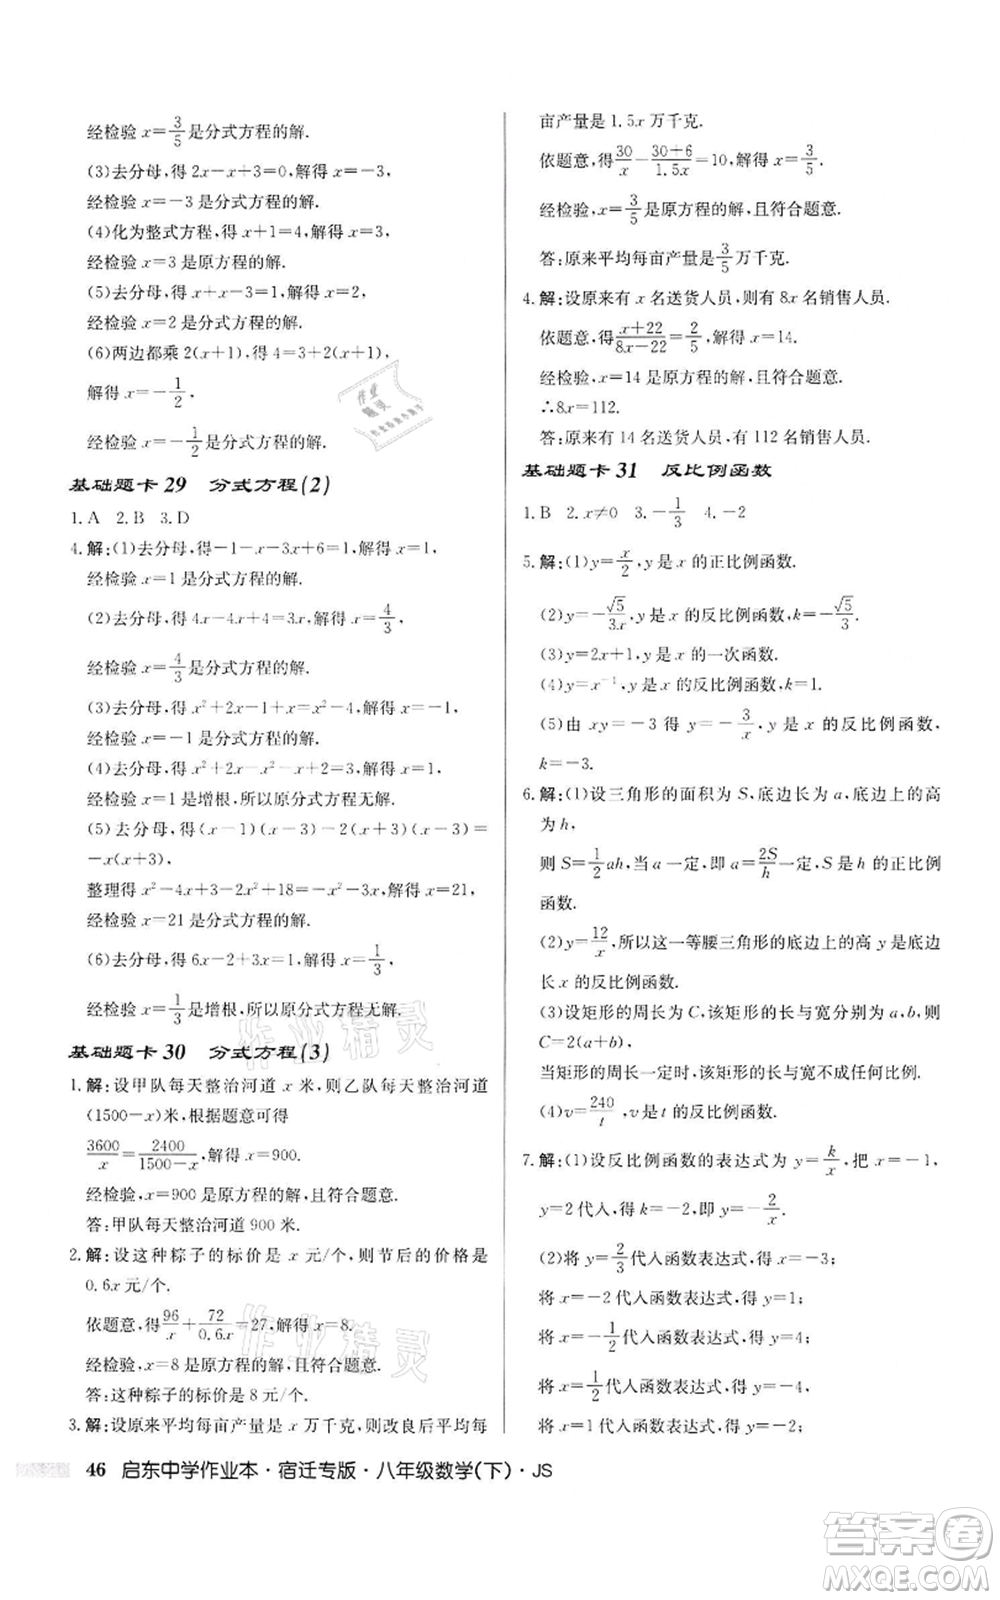 经检验 x=3/5是分式方程的解.
(3)去分母,得 2x-x+3=0,解得 x=-3,
经检验 x=-3 是分式方程的解.
(4)化为整式方程,得 x+1=4,解得 x=3,
经检验 x=3 是原方程的解.
(5)去分母,得 x-3+x-2=-1,解得 x=2,
经检验 x=2 是原方程的解.
(6)两边都乘 2(x+1),得 4=3+2(x+1),
解得 x=-1/2,
经检验 x=-1/2是分式方程的解.
基础题卡 29 分式方程(2)
1.A 2.B 3.D
4.解:(1)去分母,得-1-x-3x+6=1,解得 x=1,
经检验 x=1 是分式方程的解.
(2)去分母,得 4x-4x+4=3x,解得 x=4/3,
经检验 x=4/3是分式方程的解.
(3)去分母,得 x²+2x-1+x=x²-4,解得 x=-1,
经检验 x=-1 是分式方程的解.
(4)去分母,得 x²+2x-x²-x+2=3,解得 x=1,
经检验 x=1 是增根,所以原分式方程无解.
(5)去分母,得(x-1)(x-3)-2(x+3)(x-3)=
-x(x+3),
整理得 x²-4x+3-2x²+18=-x²-3x,解得 x=21,
经检验 x=21 是分式方程的解.
(6)去分母,得 6x-2+3x=1,解得 x=1/3,
经检验 x=1/3是增根,所以原分式方程无解.
基础题卡 30 分式方程(3)
1.解:设甲队每天整治河道 x 米,则乙队每天整治河道
(1500-x)米,根据题意可得
3600/x=2400/(1500-x),解得 x=900.
经检验,x=900 是原方程的解,且符合题意.
答:甲队每天整治河道 900 米.
2.解:设这种粽子的标价是 x 元/个,则节后的价格是
0.6x 元/个.
依题意,得96/x+72/0.6x=27,解得 x=8.
经检验,x=8 是原方程的解,且符合题意.
答:这种粽子的标价是 8 元/个.
3.解:设原来平均每亩产量是 x 万千克,则改良后平均每
亩产量是 1.5x 万千克.
依题意,得30/x-(30+6)/1.5x=10,解得 x=3/5.
经检验,x=3/5是原方程的解,且符合题意.
答:原来平均每亩产量是3/5万千克.
4.解:设原来有 x 名送货人员,则有 8x 名销售人员.
依题意,得(x+22)/(8x-22)=2/5,解得 x=14.
经检验,x=14 是原方程的解,且符合题意.
∴8x=112.
答:原来有 14 名送货人员,有 112 名销售人员.
基础题卡 31 反比例函数
1.B 2.x≠0 3.-1/3 4.-2
5.解:(1)y=x/2,y 是 x 的正比例函数.
(2)y=-√5/3x,y 是 x 的反比例函数,k=-√5/3.
(3)y=2x+1,y 是 x 的一次函数.
(4)y=x⁻¹,y 是 x 的反比例函数,k=1.
(5)由 xy=-3 得 y=-3/x,y 是 x 的反比例函数,
k=-3.
6.解:(1)设三角形的面积为 S,底边长为 a,底边上的高
为 h,
则 S=1/2ah,当 a 一定,即 a=2S/h一定,S 是 h 的正比例
函数.
(2)y=12/x,所以这一等腰三角形的底边上的高 y 是底边
长 x 的反比例函数.
(3)设矩形的周长为 C,该矩形的长与宽分别为 a、b,则
C=2(a+b),
当矩形的周长一定时,该矩形的长与宽不成任何比例.
(4)v=240/t,v 是 t 的反比例函数.
7.解:(1)设反比例函数的表达式为 y=k/x,把 x=-1,
y=2 代入,得 k=-2,即 y=-2/x.
(2)将 y=2/3代入函数表达式,得 x=-3;
将 x=-2 代入函数表达式,得 y=1;
将 x=-1/2代入函数表达式,得 y=4;
将 x=1/2代入函数表达式,得 y=-4,
将 x=1 代入函数表达式,得 y=-2;
46 启东中学作业本·宿迁专版·八年级数学(下)·JS
作业精灵
作业精灵
作业精灵
答案卷
MXQE.COM